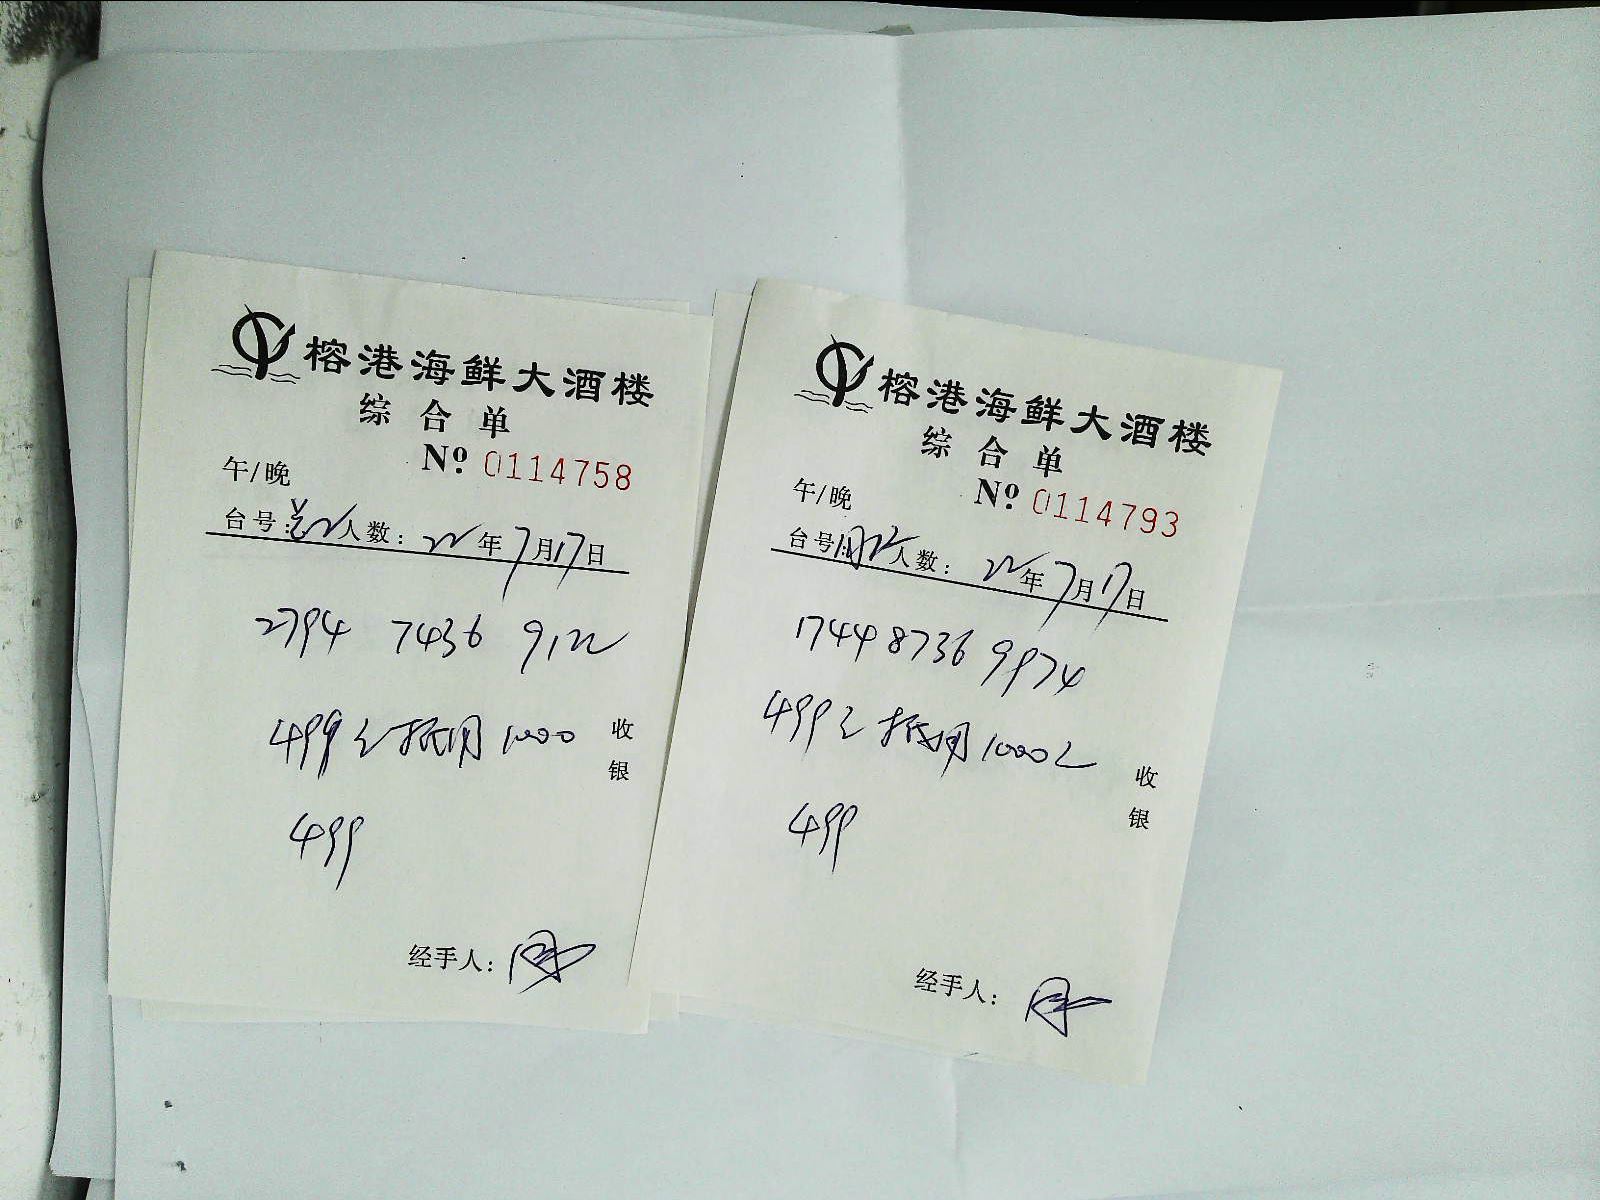 榕港海鲜大酒楼
综合单
午/晚
Nº 0114758
台号: 人数: 22年7月17日
2794 7436 9122
499元抵用1000
收银
499
经手人:
榕港海鲜大酒楼
综合单
午/晚
Nº 0114793
台号: 人数: 22年7月17日
1744 8736 9974
499元抵用1000元
收银
499
经手人: